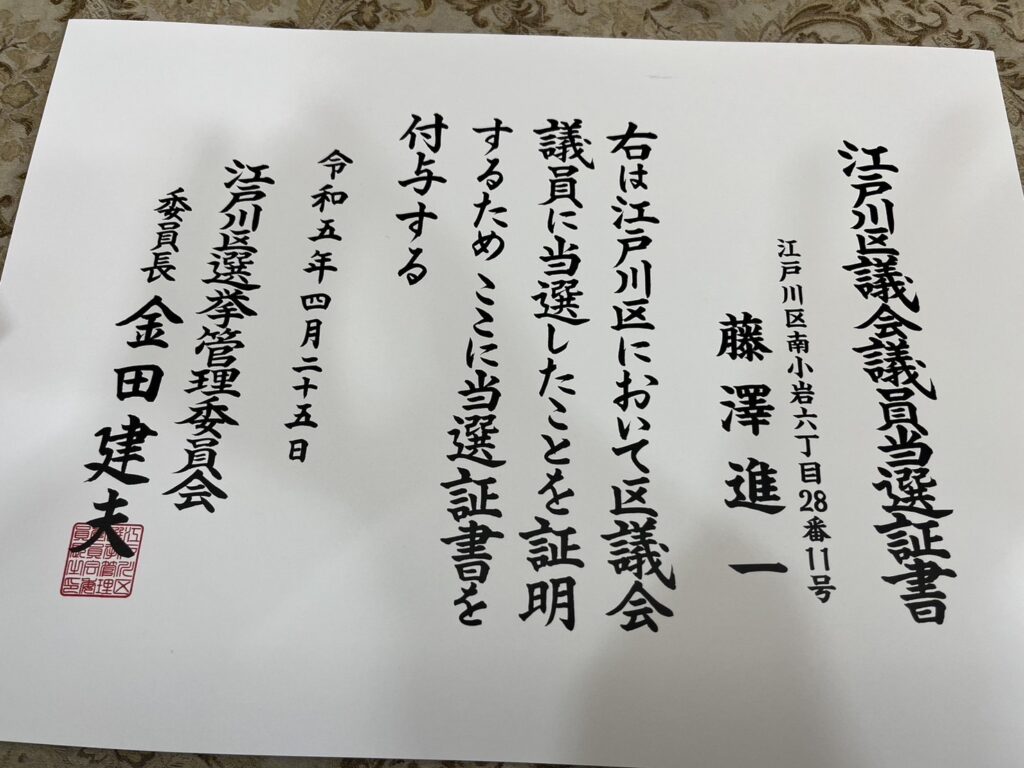 江戸川区議会議員当選証書
江戸川区南小岩六丁目28番11号
藤澤進一
右は江戸川区において区議会
議員に当選したことを証明
するため ここに当選証書を
付与する
令和五年四月二十五日
江戸川区選挙管理委員会
委員長 金田建夫